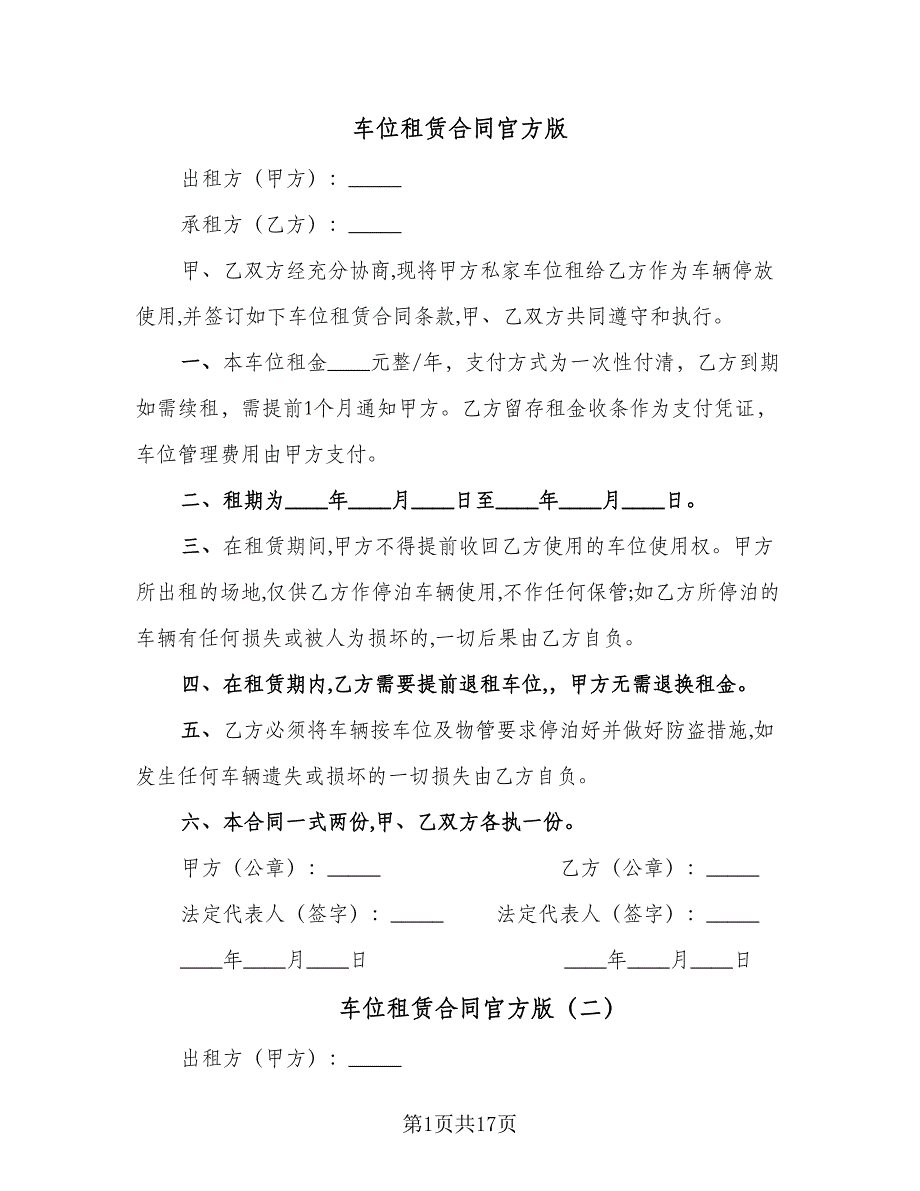 车位租赁合同官方版
出租方（甲方）：_____
承租方（乙方）：_____
甲、乙双方经充分协商,现将甲方私家车位租给乙方作为车辆停放
使用,并签订如下车位租赁合同条款,甲、乙双方共同遵守和执行。
一、本车位租金____元整/年，支付方式为一次性付清，乙方到期
如需续租，需提前1个月通知甲方。乙方留存租金收条作为支付凭证，
车位管理费用由甲方支付。
二、租期为____年____月____日至____年____月____日。
三、在租赁期间,甲方不得提前收回乙方使用的车位使用权。甲方
所出租的场地,仅供乙方作停泊车辆使用,不作任何保管;如乙方所停泊的
车辆有任何损失或被人为损坏的,一切后果由乙方自负。
四、在租赁期内,乙方需要提前退租车位,，甲方无需退换租金。
五、乙方必须将车辆按车位及物管要求停泊好并做好防盗措施,如
发生任何车辆遗失或损坏的一切损失由乙方自负。
六、本合同一式两份,甲、乙双方各执一份。
甲方（公章）：_____ 乙方（公章）：_____
法定代表人（签字）：_____ 法定代表人（签字）：_____
____年____月____日 ____年____月____日
车位租赁合同官方版（二）
出租方（甲方）：_____
第1页共17页